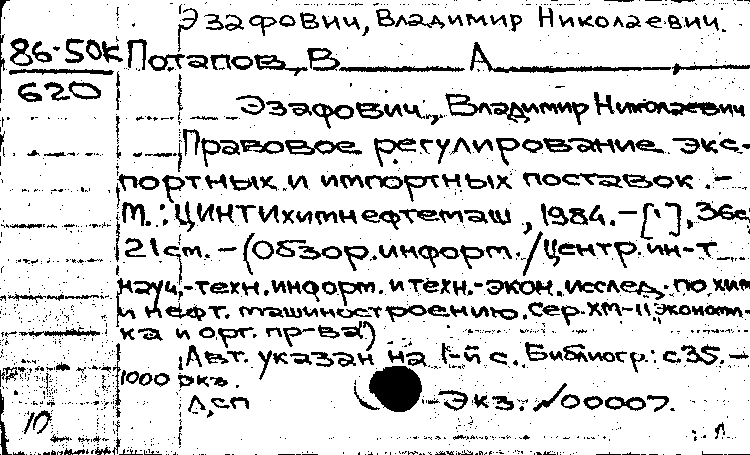 Эзафович, Владимир Николаевич.
86-50к Потапов, В А ,
620
Эзафович, Владимир Николаевич
Правовое регулирование экс-
портных и импортных поставок. -
М.: ЦИНТИхимнефтемаш, 1984. - [1], 36с
21 см. - (Обзор. информ. / Центр. ин-т
науч.-техн. информ. и техн.-экон. исслед. по хим
и нефт. машиностроению. Сер. ХМ-11, Экономи-
ка и орг. пр-ва)
Авт. указан на 1-й с. Библиогр.: с. 35. -
1000 экз.
ДСП - Экз. №00007.
10